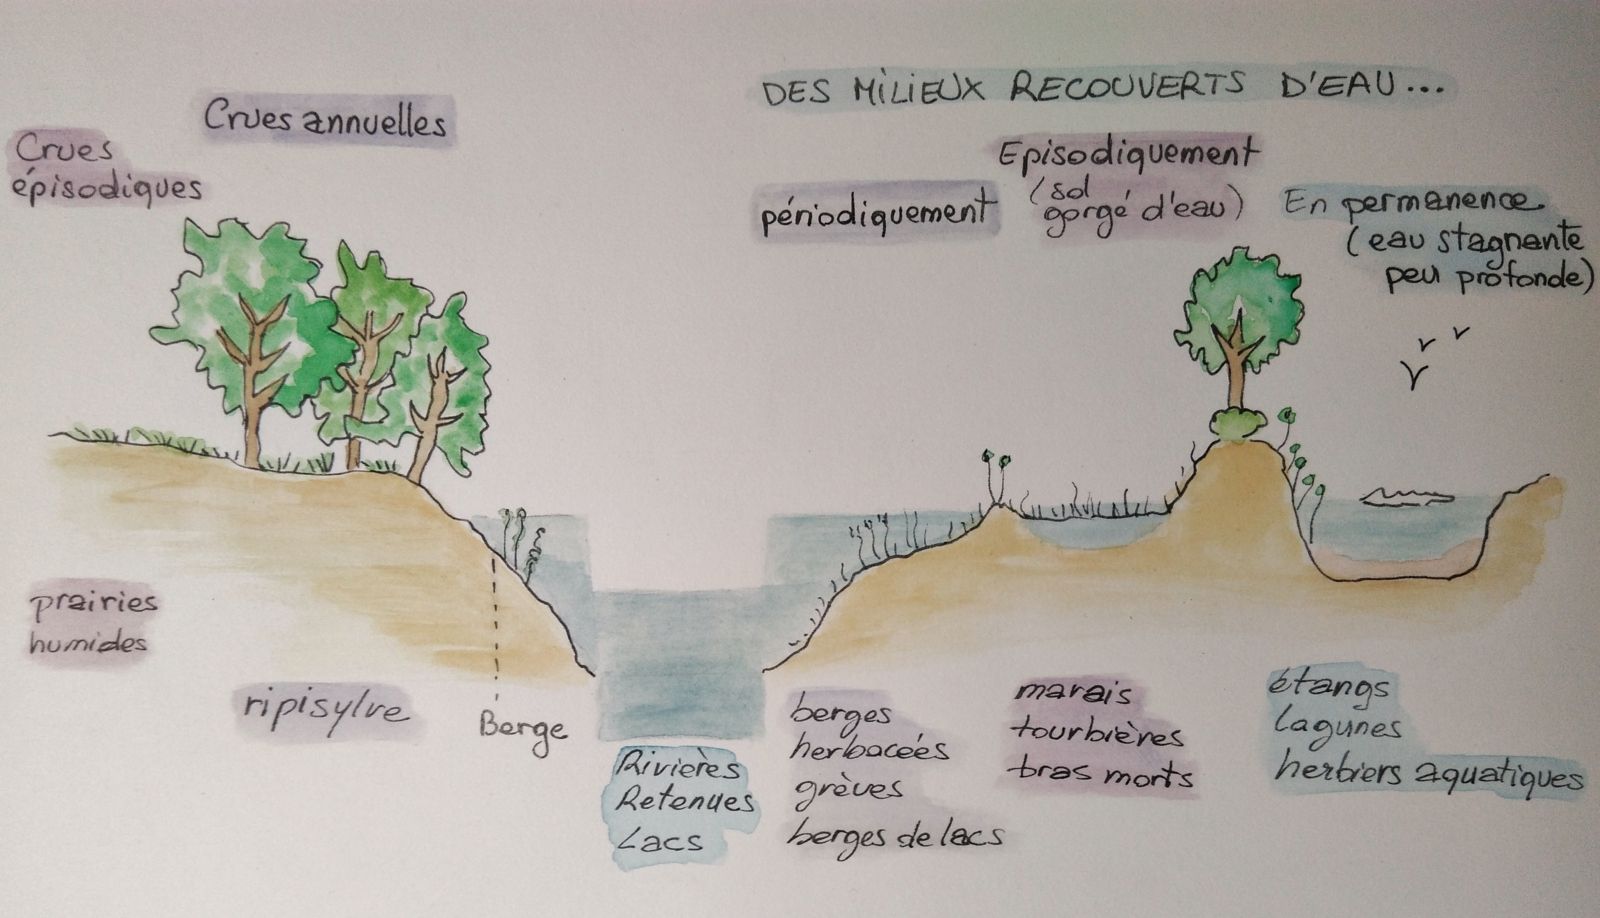 DES MILIEUX RECOUVERTS D'EAU...
Crues annuelles
Crues
épisodiques
périodiquement
Episodiquement
(sol
gorgé d'eau)
En permanence
(eau stagnante
peu profonde)
prairies
humides
ripisylve
Berge
Rivières
Retenues
Lacs
berges
herbacées
grèves
berges de lacs
marais
tourbières
bras morts
étangs
lagunes
herbiers aquatiques